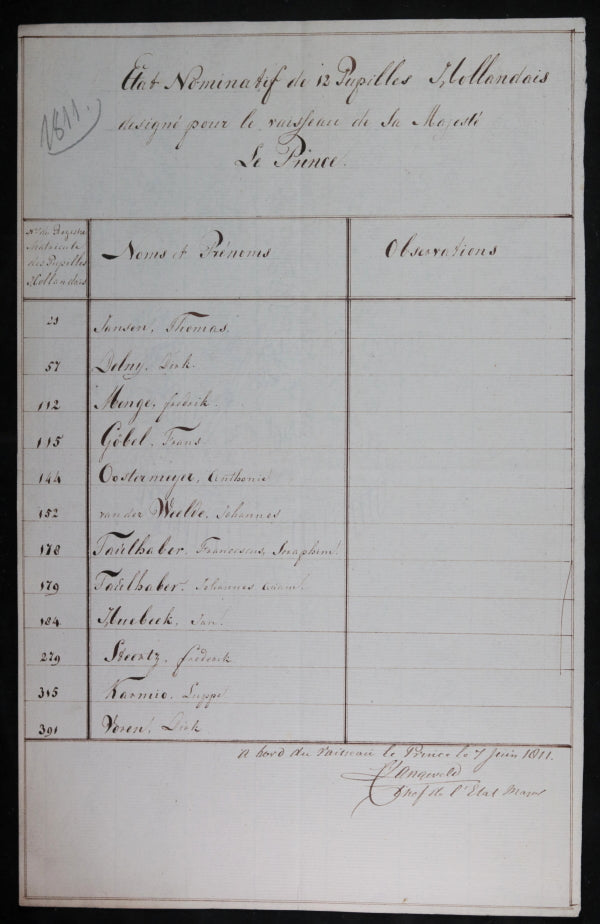 Etat Nominatif de 12 Pupilles Hollandais
designé pour le vaisseau de Sa Majesté
Le Prince.
1811.
Nos. du Registre
Matricule
des Pupilles
Hollandais
Noms et Prénoms
Observations
23 Jansen, Thomas.
57 Delny. Dirk.
112 Menge. frederik.
115 Göbel. Frans
144 Oostermeyer, Anthonie
152 van der Weelde. Johannes
178 Faulhaber. Franciscus,
179 Faulhaber. Johannes Adam.
184 Huebeek, Jan.
279 frederick
315 Karmio. Luppe
391 Voren. Dirk
a bord du Vaisseau le Prince le 7 Juin 1811.
L'Angeveld
Chef de l'Etat Major